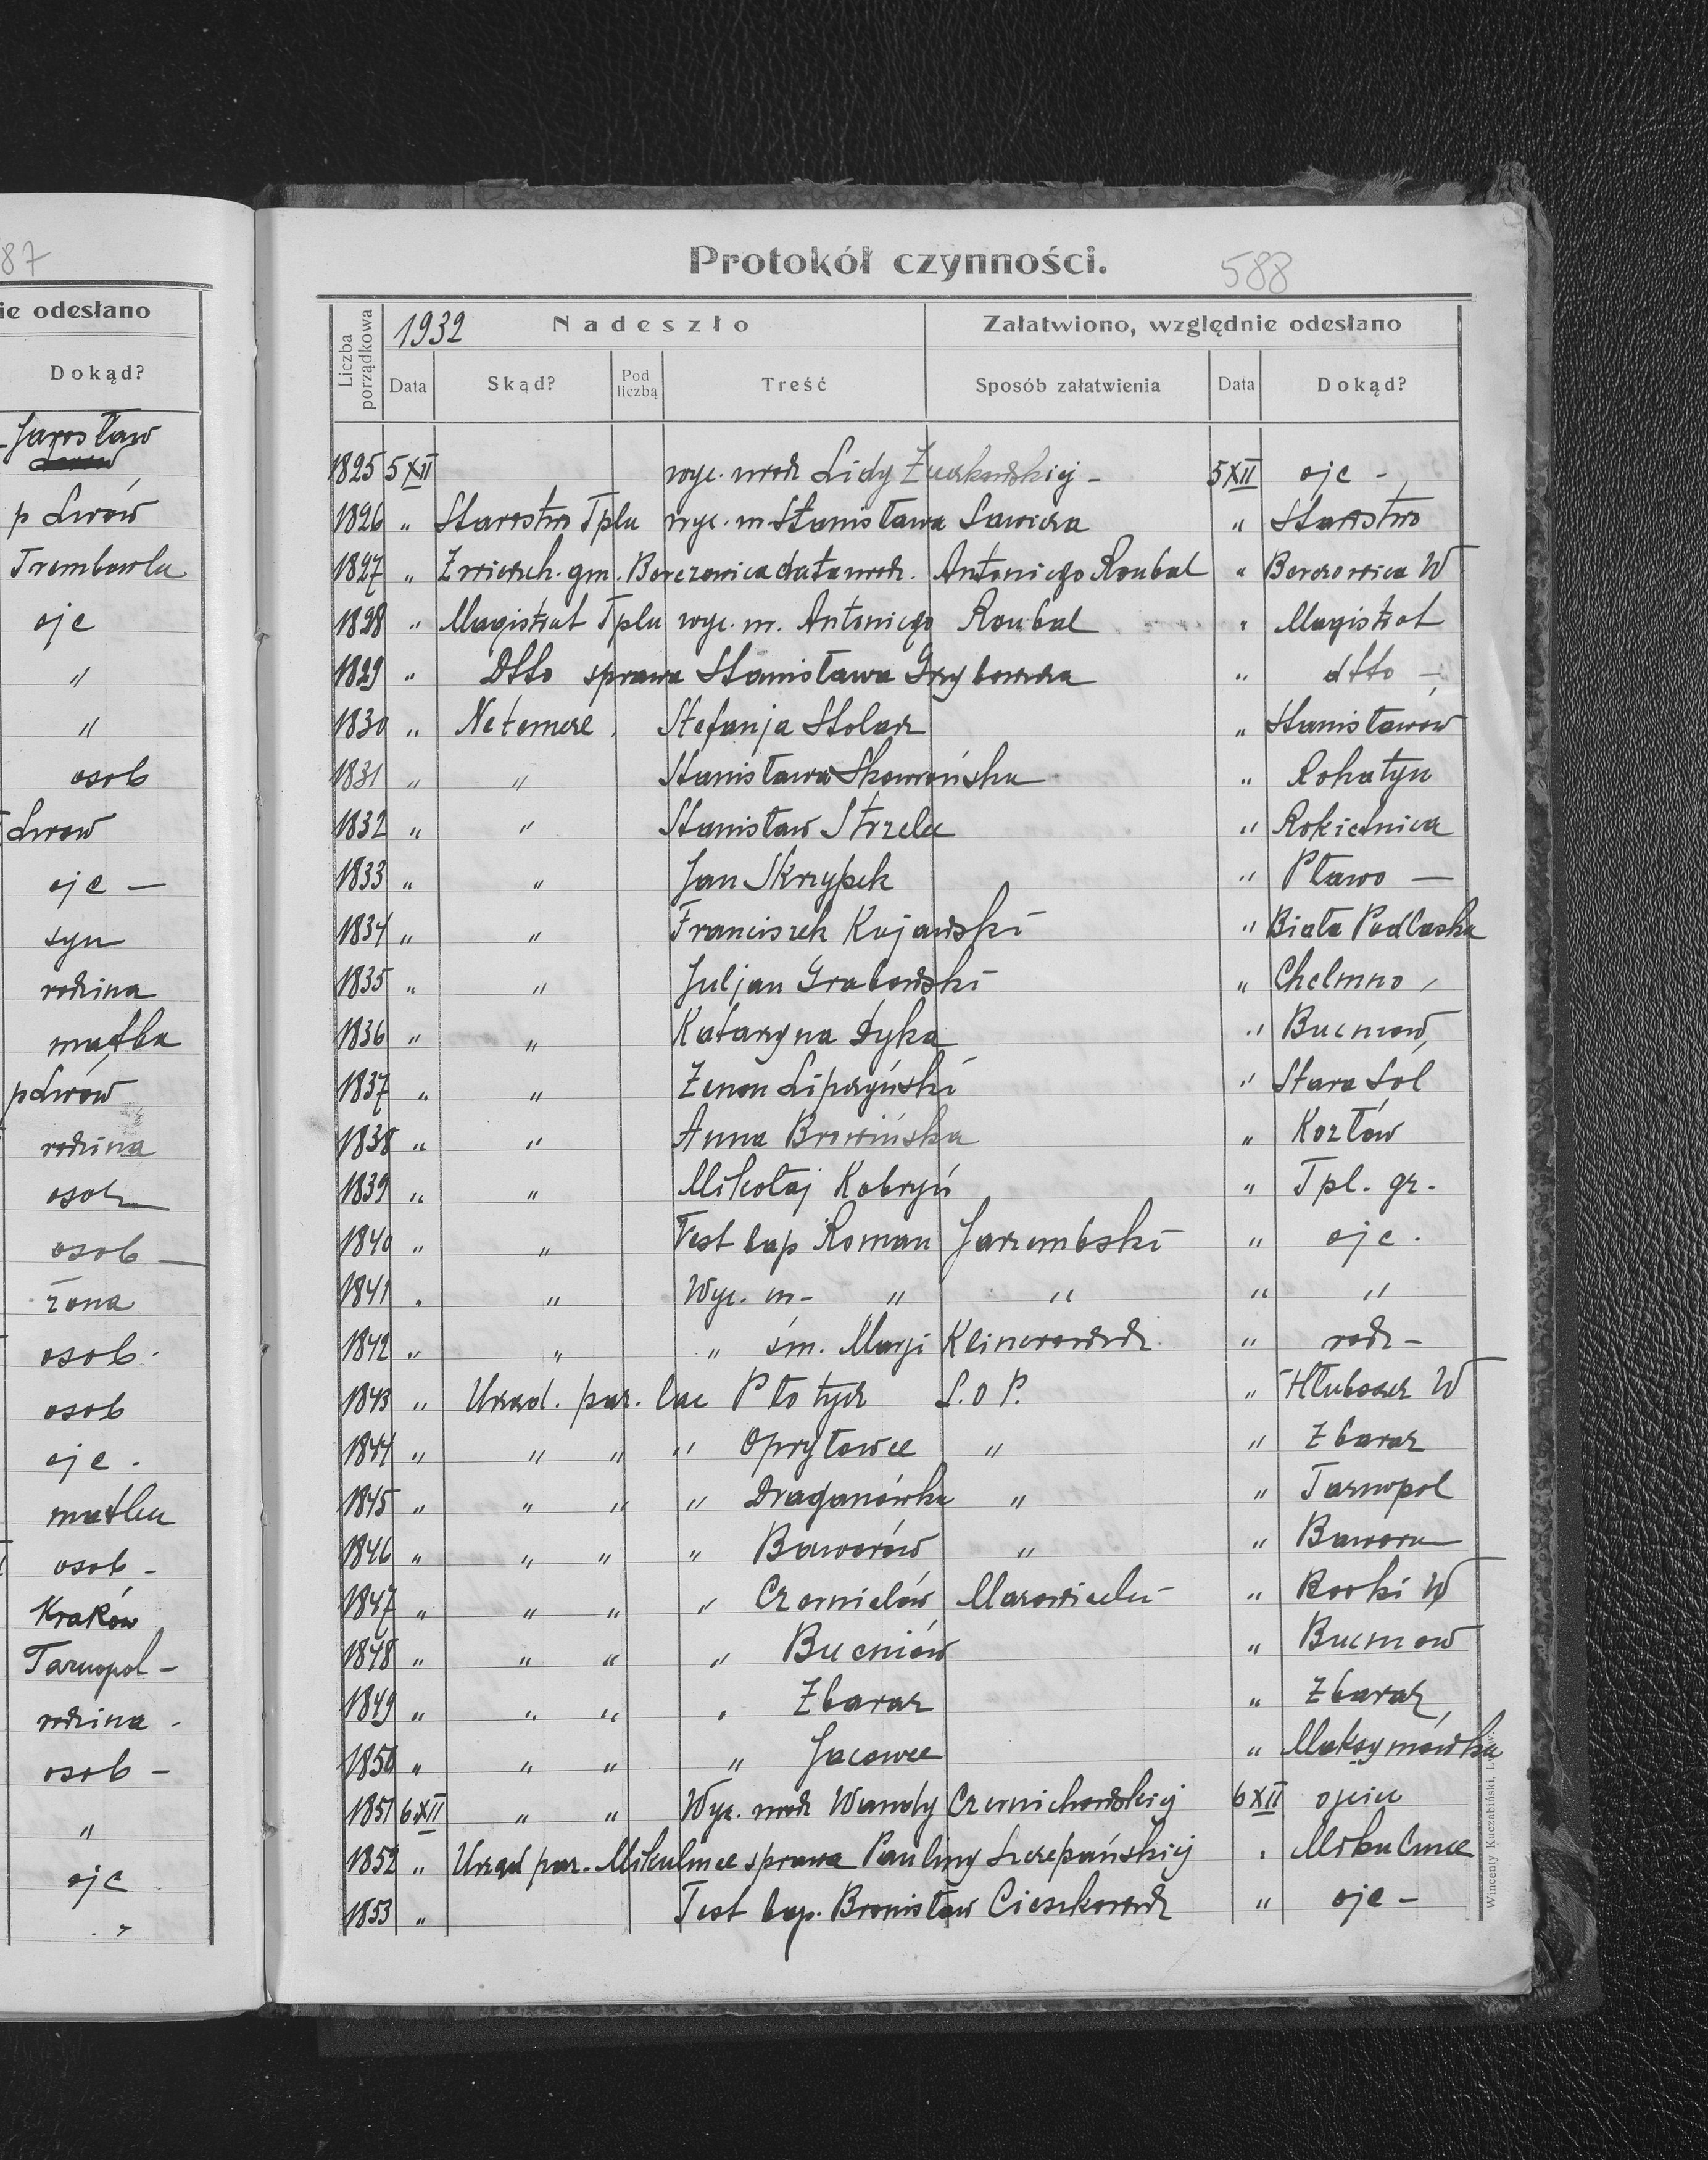 87
ie odesłano
Dokąd?
Jarosław
p Lwów
Trembowla
ojc
"
"
osob
Lwow
ojc —
syn
rodzina
matka
p Lwów
rodzina
osob
osob —
żona
osob.
osob
ojc.
matka
osob -
Kraków
Tarnopol -
rodzina -
osob -
"
ojc
"
Protokół czynności. 588
1932 Nadeszło Załatwiono, względnie odesłano
Liczba porządkowa Data Skąd? Pod liczbą Treść Sposób załatwienia Data Dokąd?
1825 5 XII wyc. urodz Lidy Żurkowskiej - 5 XII ojc -
1826 " Starostwo Tpla wyc. m. Stanisława Sawicza " Starostwo
1827 " Zwierzch. gm. Berezowica data urodz. Antoniego Roubal " Berezowica W
1828 " Magistrat Tpla wyc. m. Antoniego Roubal " Magistrat
1829 " Dtto sprawa Stanisława Grzybowicza " dtto -
1830 " Ne temere Stefanja Stolarz " Stanisławów
1831 " " Stanisława Skowrońska " Rohatyn
1832 " " Stanisław Strzelec " Rokietnica
1833 " " Jan Skrzypek " Pławo —
1834 " " Franciszek Kujawski " Biała Podlaska
1835 " " Juljan Grabowski " Chełmno
1836 " " Katarzyna Dyka " Bucniow
1837 " " Zenon Lipczyński " Stara Sól
1838 " " Anna Browińska " Kozłów
1839 " " Mikołaj Kobryń " Tpl. gr.
1840 " " Test bap Roman Jarzembski " ojc.
1841 " " Wyc. m- " " " "
1842 " " " śm. Marji " rodz -
1843 " Urzad. par. łac Płotycz S.O.P. " Hłuboczek W
1844 " " " " Opryłowce " " Zbaraz
1845 " " " " Draganówka " " Tarnopol
1846 " " " " Baworów " " Bawora
1847 " " " " Czernielów Mazowiecki - " Borki W
1848 " " " " Bucniów " Bucniow
1849 " " " " Zbaraz " Zbaraz
1850 " " " " Jacowce " Maksymówka
1851 6 XII " " Wyc. urodz Wandy Czernichowskiej 6 XII ojciec
1852 " Urzad par. Mikulince sprawa Pauliny Szczepańskiej " Mikulince
1853 " Test bap. Bronisław " ojc -
Wincenty Kuczabiński, Lwów